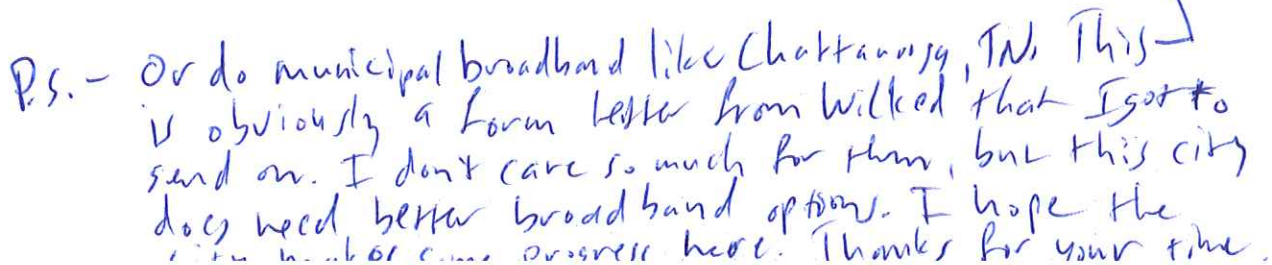 P.S. - Or do municipal broadband like Chattanooga, TN. This
is obviously a form letter from Wilked that I got to
send on. I don't care so much for them, but this city
does need better broadband options. I hope the
city makes some progress here. Thanks for your time.